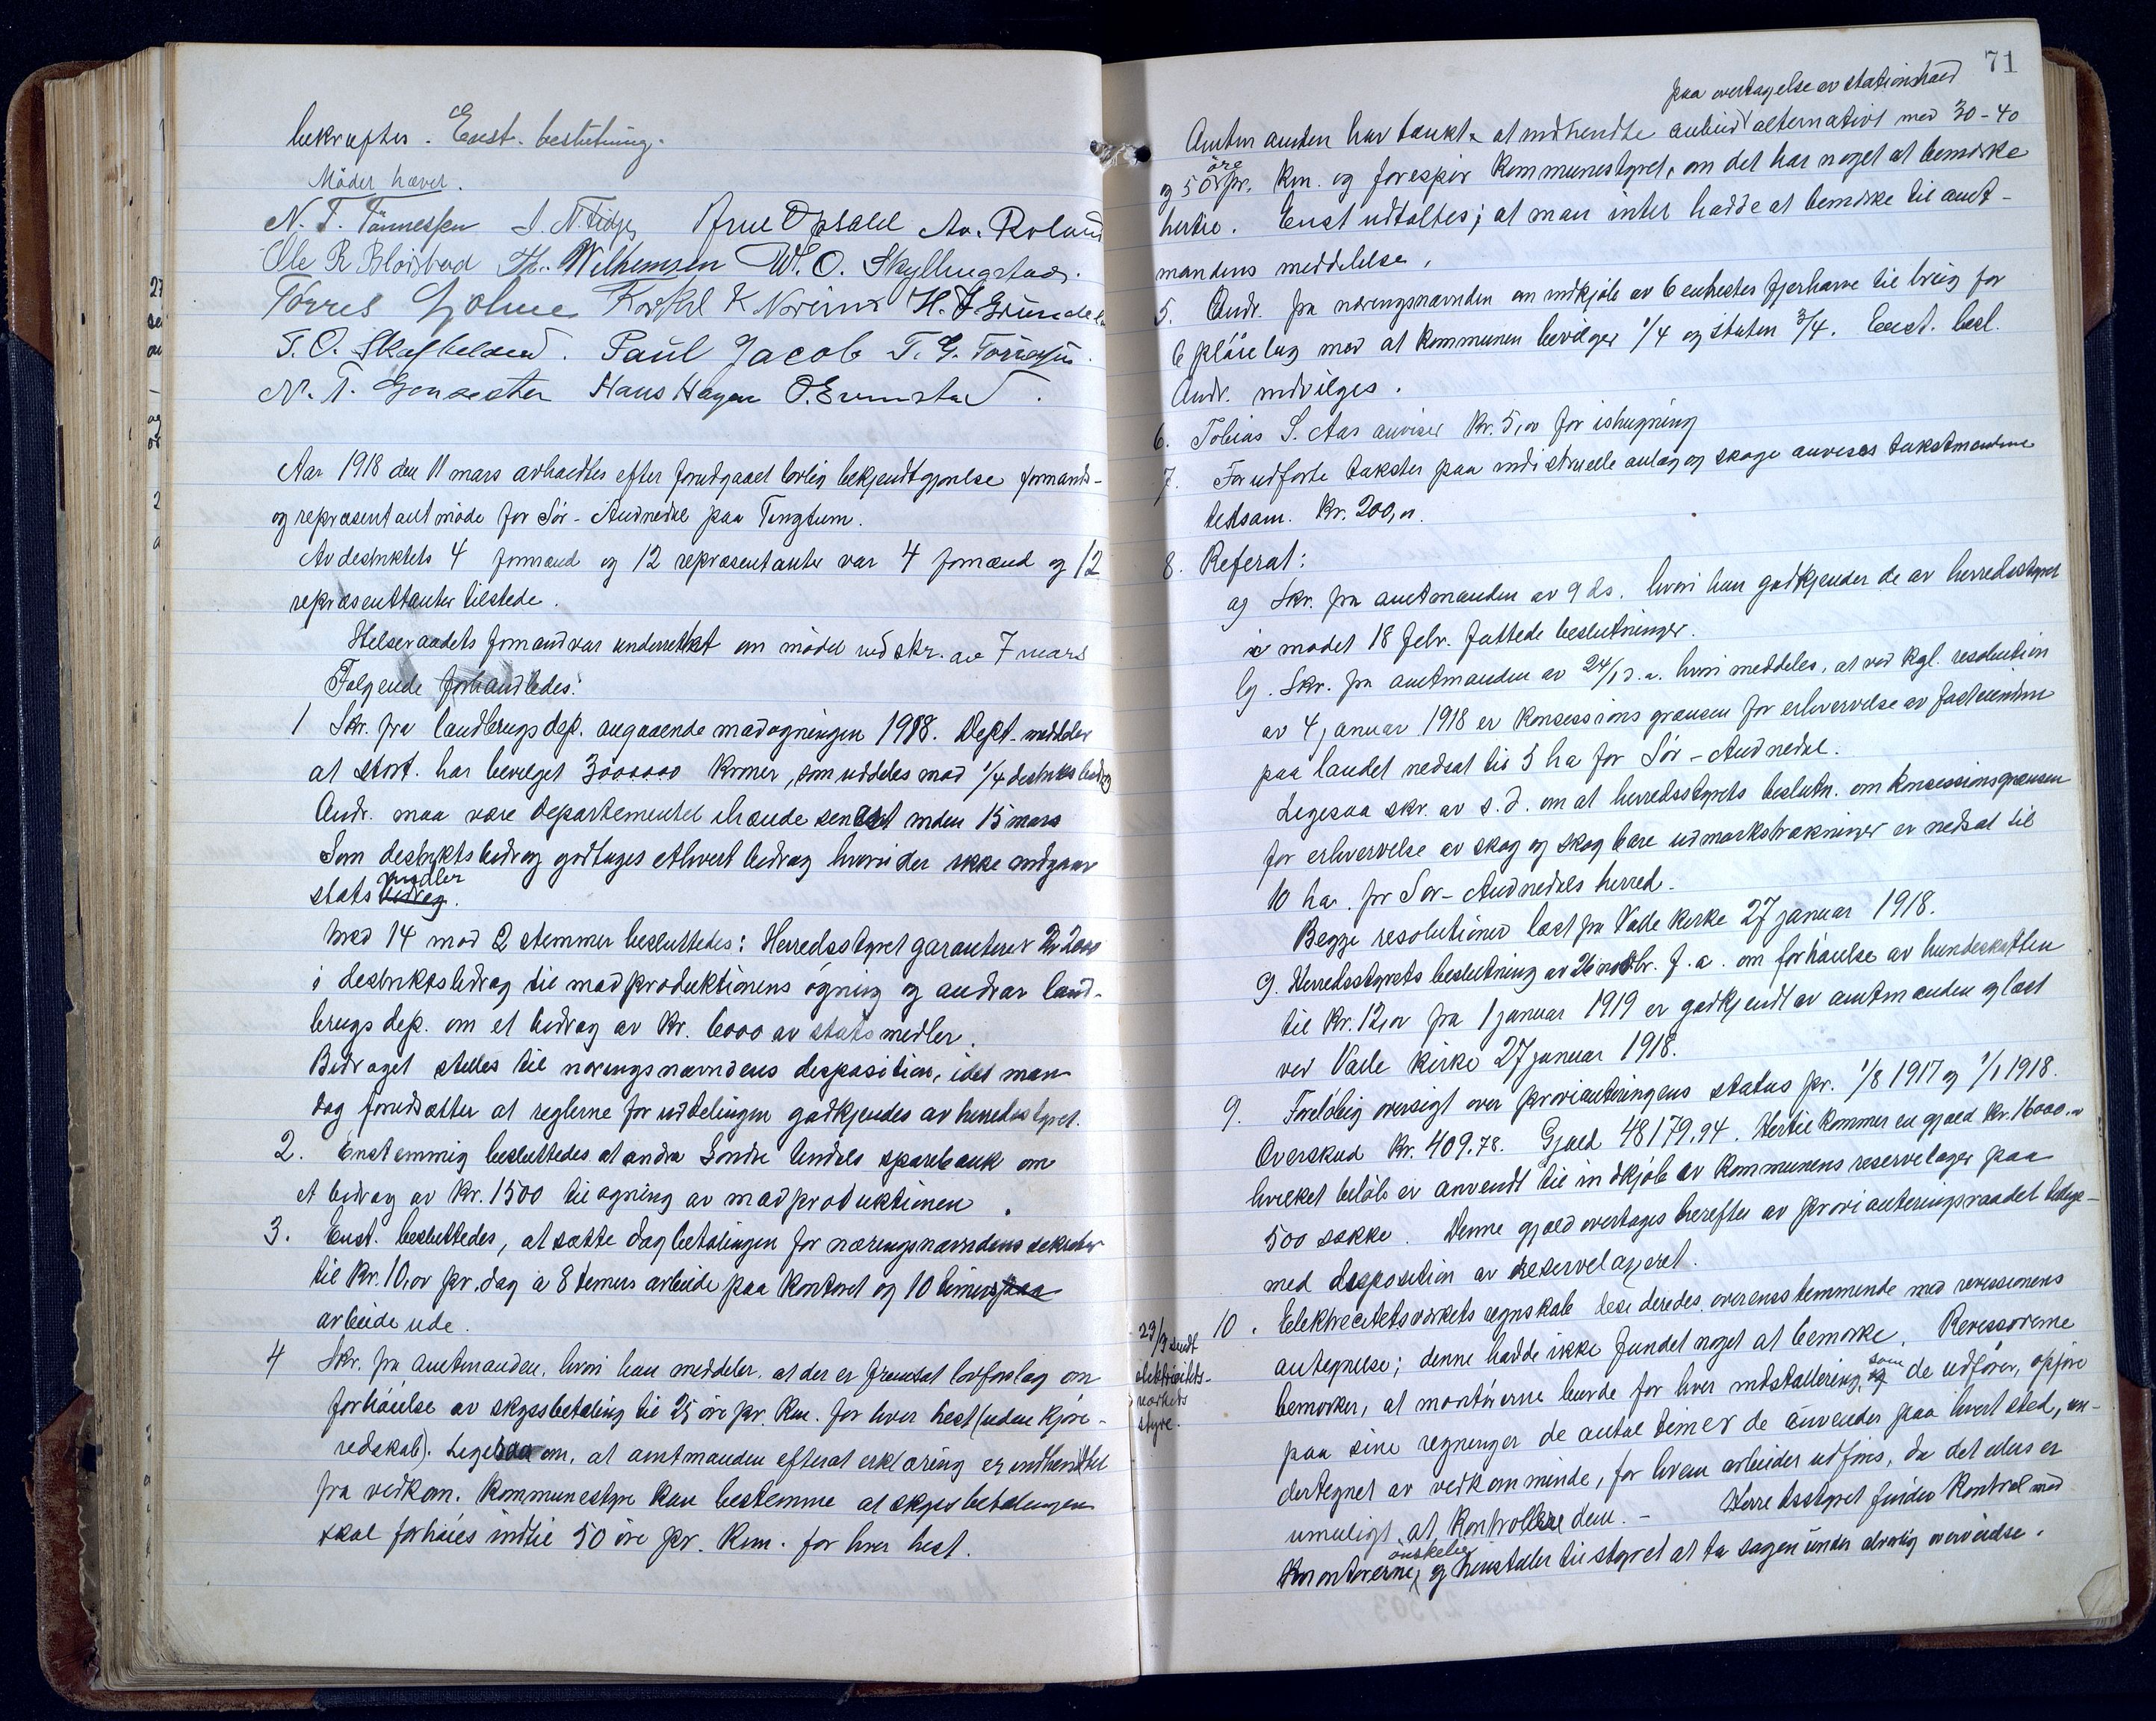 bekræftes. Enst. beslutning.
Mødet hævet.
N. T. Tønnessen S. N. Fidje Arne Opsahl Aa. Roland
Ole R Bloistad Th. Wilhemsen W. O. Skyllingstad.
Tørres Holme Torkel K Noreim H. J. Grundel
T. O. Skofteland. Paul Jacob T. G. Tørresen.
N. T. Hans Hagen O. Evenstad.
Aar 1918 den 11 mars avholdtes efter forutgaaet lovlig bekjendtgjørelse formands-
og repræsentantmøde for Sør-Audnedal paa Tingtun.
Av destriktets 4 formænd og 12 repræsentanter var 4 formænd og 12
repræsentanter tilstede.
Helseraadets formand var underrettet om mødet ved skr. av 7 mars
Følgende forhandledes:
1 Skr. fra landbrugsdep. angaaende madøgningen 1918. Dept. meddeler
at Stort. har bevilget 3000000 kroner, som uddeles mod 1/4 destriktsbidrag
Andr. maa være departementet ihænde senest inden 15 mars
Som destriktsbidrag godtages ethvert bidrag hvori der ikke indgaar
stats bidrag midler.
Med 14 mod 2 stemmer besluttedes: Herredsstyret garanterer kr 2000
i destriktsbidrag til madproduktionens øgning og andrar land-
brugsdep. om et bidrag av kr. 6000 av statsmidler.
Bidraget stilles til næringsnævndens disposition, idet man
dog forudsætter at reglerne for uddelingen godkjendes av herredsstyret.
2. Enstemmig besluttedes at andra Søndre Undals sparebank om
et bidrag av kr. 1500 til øgning av madproduktionen.
3. Enst. besluttedes, at sætte dagbetalingen for næringsnævndens sekretær
til kr. 10,00 pr. dag a 8 timers arbeide paa kontoret og 10 timers paa
arbeide ude.
4 Skr. fra amtmanden, hvori han meddeler, at der er fremsat lovforslag om
forhøielse av skysbetaling til 25 øre pr. km. for hver hest (uden kjøre-
redskab). Ligesaa om, at amtmanden efterat erklæring er indhentet
fra vedkom. kommunestyre kan bestemme at skysbetalingen
skal forhøies indtil 50 øre pr. km. for hver hest.
71
paa overtagelse av stationshold
Amtmanden har tænkt at indhendte anbud alternativt med 30-40
og 50 øre pr. km. og forespør kommunestyret, om det har noget at bemærke
hertil. Enst udtaltes; at man intet hadde at bemærke til amt-
mandens meddelelse.
5. Andr. fra næringsnævnden om indkjøb av 6 enhestes fjerharve til brug for
6 pløielag mod at kommunen bevilger 1/4 og staten 3/4. Enst. besl.
Andr. indvilges.
6. Tobias S. Aas anvises kr. 5,00 for ishugning
7. For udførte takster paa industrielle anlæg og skoge anvises takstmændene
tilsam. kr. 200,00.
8. Referat:
a) Skr. fra amtmanden av 9 ds. hvori han godkjender de av herredsstyret
i mødet 18 febr. fattede beslutninger.
b). Skr. fra amtmanden av 24/1 d.a. hvori meddeles, at ved kgl. resolution
av 4 januar 1918 er konsessionsgrænsen for erhvervelse av fasteiendom
paa landet nedsat til 5 ha for Sør-Audnedal.
Ligesaa skr. av s.d. om at herredsstyrets beslutn. om konsessionsgrænsen
for erhvervelse av skog og skogbare udmarkstrækninger er nedsat til
10 ha. for Sør-Audnedals herred.
Begge resolutioner læst fra Valle kirke 27 januar 1918.
9. Herredsstyrets beslutning av 26 novbr. f.a. om forhøielse av hundeskatten
til kr. 12,00 fra 1 januar 1919 er godkjendt av amtmanden og læst
ved Valle kirke 27 januar 1918.
9. Foreløbig oversigt over provianteringens status pr. 1/8 1917 og 1/1 1918.
Overskud kr. 409.78. Gjæld 48179,94. Hertil kommer en gjæld kr. 16000,00
hvilket beløb er anvendt til indkjøb av kommunens reservelager paa
500 sække. Denne gjæld overtages herefter av provianteringsraadet tillige-
med disposition av reservelageret.
10. Elektrecitetsverkets regnskab desideredes overensstemmende med revissionens
antegnelse; denne hadde ikke fundet noget at bemærke. Revissorerne
bemerker, at montørerne burde for hver indstallering, som de udfører, opføre
paa sine regninger de antal timer de anvender paa hvert sted, un-
dertegnet av vedkommende, for hvem arbeidet udføres, da det ellers er
umuligt at kontrollere dem. - Herredsstyret finder kontrol med
montørerne ønskelig, og henstiller til styret at ta sagen under alvorlig overveielse.
29/9 sendt
elektricitets-
verkets
styre.